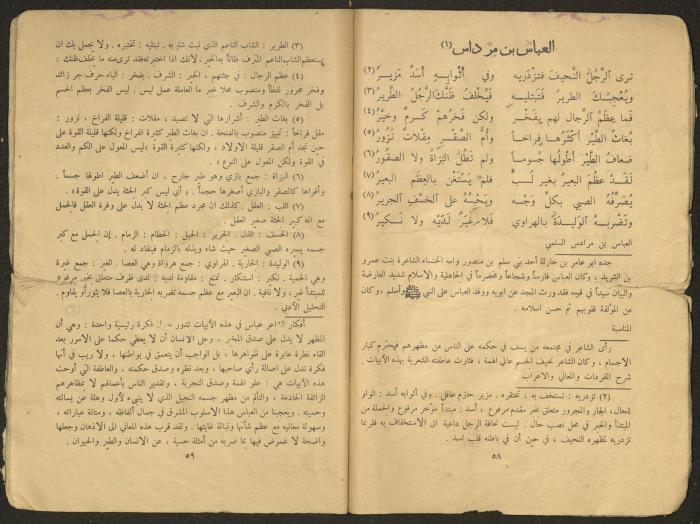 العباس بن مرداس (١)
ترى الرَّجُلَ النَّحيفَ فتزدريه وفي أثوابِه أسَدٌ مَزيرُ (٢)
ويُعْجِبُكَ الطريرُ فتَبتليهِ فيُخْلِفُ ظَنَّكَ الرَّجُلُ الطَّريرُ (٣)
فما عِظَمُ الرِّجالِ لهم بفَخْرٍ ولكن فخرُهُم كَرَمٌ وخِيْرُ (٤)
بُغاثُ الطَّيْرِ أكثرُها فِراخاً وأُمُّ الصَّقْرِ مِقْلاتٌ نَزُورُ (٥)
ضعافُ الطَّيْرِ أطْولُها جُسوماً ولم تَطُلِ البُزاةُ ولا الصقورُ (٦)
لَقَدْ عظُمَ البعيرُ بغيرِ لُبٍّ فلم يَسْتَغْنِ بالعِظَمِ البعيرُ (٧)
يُصَرِّفُهُ الصبي بكلِّ وَجْهٍ ويَحْبِسُهُ على الخَسْفِ الجَريرُ (٨)
وتَضْرِبُهُ الوَليدةُ بالهراوي فلا غِيَرٌ لَدَيْهِ ولا نَكيرُ (٩)
العباس بن مرداس السلمي
جده ابو عامر بن حارثة أحد بني سلم بن منصور وامه الخنساء الشاعرة بنت عمرو
بن الشريد ، وكان العباس فارساً وشجاعاً ومخضرماً في الجاهلية والاسلام شديد العارضة
والبيان سيداً في قومه فقد ورث المجد عن ابويه ووفد العباس على النبي ﷺ وأسلم ، وكان
من المؤلفة قلوبهم ثم حسن اسلامه .
المناسبة
رأى الشاعر في مجتمعه من يسف في حكمه على الناس من مظهرهم فيحترم كبار
الاجسام ، وكان الشاعر نحيف الجسم عالي الهمة ، فثارت عاطفته الشعرية بهذه الأبيات .
شرح المفردات والمعاني والاعراب
(٢) تزدريه : تستخف به ، تحتقره . مزير حازم عاقل . وفي أثوابه أسد : الواو
للحال، الجار والمجرور متعلق بخبر مقدم مرفوع ، أسد : مبتدأ مؤخر مرفوع والجملة من
المبتدأ والخبر في محل نصب حال . ليست نحافة الرجل داعية الى الاستخفاف به فلربما
تزدريه لمظهره النحيف ، في حين أن في باطنه قلب اسد .
٥٨
(٣) الطرير : الشاب الناعم الذي نبت شاربه . تبتليه : تختبره . ولا يجمل بك ان
يستعظم الشاب الناعم المترف ظاناً به الخير، لانك اذا اختبرته فقد ترى منه ما يخلف ظنك .
(٤) عظم الرجال : في جثتهم ، الخير : الشرف . بفخر : الباء حرف جر زائد
وفخر مجرور لفظاً ومنصوب محلا خبر ما العاملة عمل ليس . ليس الفخر بعظم الجسم
بل الفخر بالكرم والشرف .
(٥) بغاث الطير : أشرارها التي لا تصيد ، مقلات : قليلة الفراخ ، نزور :
مقل فراخاً : تمييز منصوب بالفتحة . ان بغاث الطير كثيرة الفراخ ولكنها قليلة القوة على
حين نجد أم الصقر قليلة الاولاد ، ولكنها كثيرة القوة « ليس المعول على الكم والعدد
في القوة ولكن المعول على النوع » .
(٦) البزاة : جمع بازي وهو طير جارح ، ان أضعف الطير اطولها جسماً .
وأقواها كالصقر والبازي أصغرها حجماً . « أي ليس كبر الجثة يدل على القوة » .
(٧) اللب : العقل . وكذلك ان مجرد عظم الجثة لا يدل على وفرة العقل فالجمل
مع انه كبير الجثة صغير العقل .
(٨) الخسف : الذل . الجرير : الحبل : الخطام : الزمام . إن الجمل مع كبر
جسمه يسيره الصبي الصغير حيث شاء ويذله بالزمام فينقاد له .
(٩) الوليدة : الجارية . الهراوي : جمع هراوة وهي العصا . الغير : جمع غيرة
وهي الحمية . نكير : استنكار . تمنع : مقاومة لديه : لدى ظرف متعلق بخبر مرفوع
للمبتدأ غير، ولا نافية . ان البعير مع عظم جسمه تضربه الجارية بالعصا فلا يثور أو يقاوم .
التحليل الأدبي .
أفكار الشاعر عباس في هذه الأبيات تدور حول فكرة رئيسية واحدة : وهي أن
المظهر لا يدل على صدق المخبر . وعلى الانسان أن لا يعطي حكما على الامور بعد
القاء نظرة عابرة على ظواهرها ، بل الواجب أن يتعمق في بواطنها ، ولا ريب في أنها
فكرة تدل على اصالة رأي صاحبها ، وبعد نظره وصدق حكمته ، والعاطفة التي أوحت
هذه الأبيات هي : علو الهمة وصدق التجربة ، وتقدير الناس بأعمالهم لا بمظاهرهم
الزائفة الخادعة ، والتألم من مظهر جسمه النحيل الذي لا ينبىء لأول وهلة عن بسالته
وحميته . ويعجبنا من العباس هذا الاسلوب المشرق في جمال ألفاظه ، ومتانة عباراته ،
وسهولة معانيه مع عظم شأنها ونبالة غايتها . ولقد قرب هذه المعاني الى الاذهان وجعلها
واضحة لا غموض فيها بما ضربه من أمثلة حسية ، عن الانسان والطير والحيوان .
٥٩